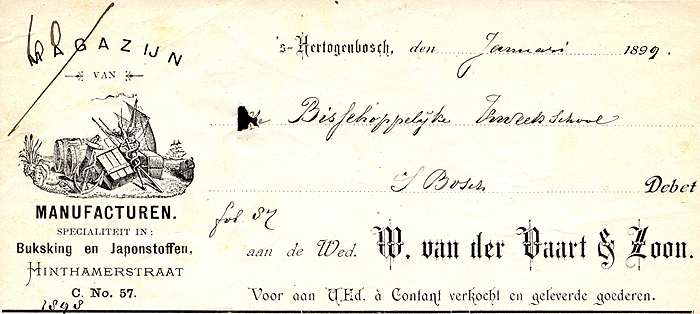 MAGAZIJN
VAN
MANUFACTUREN.
SPECIALITEIT IN:
Buksking en Japonstoffen,
HINTHAMERSTRAAT
C. No. 57.
1898
's-Hertogenbosch, den Januari 1899.
de Bisschoppelijke Kweekschool
S Bosch Debet
fol 87
aan de Wed. W. van der Vaart & Zoon.
Voor aan U.Ed. à Contant verkocht en geleverde goederen.